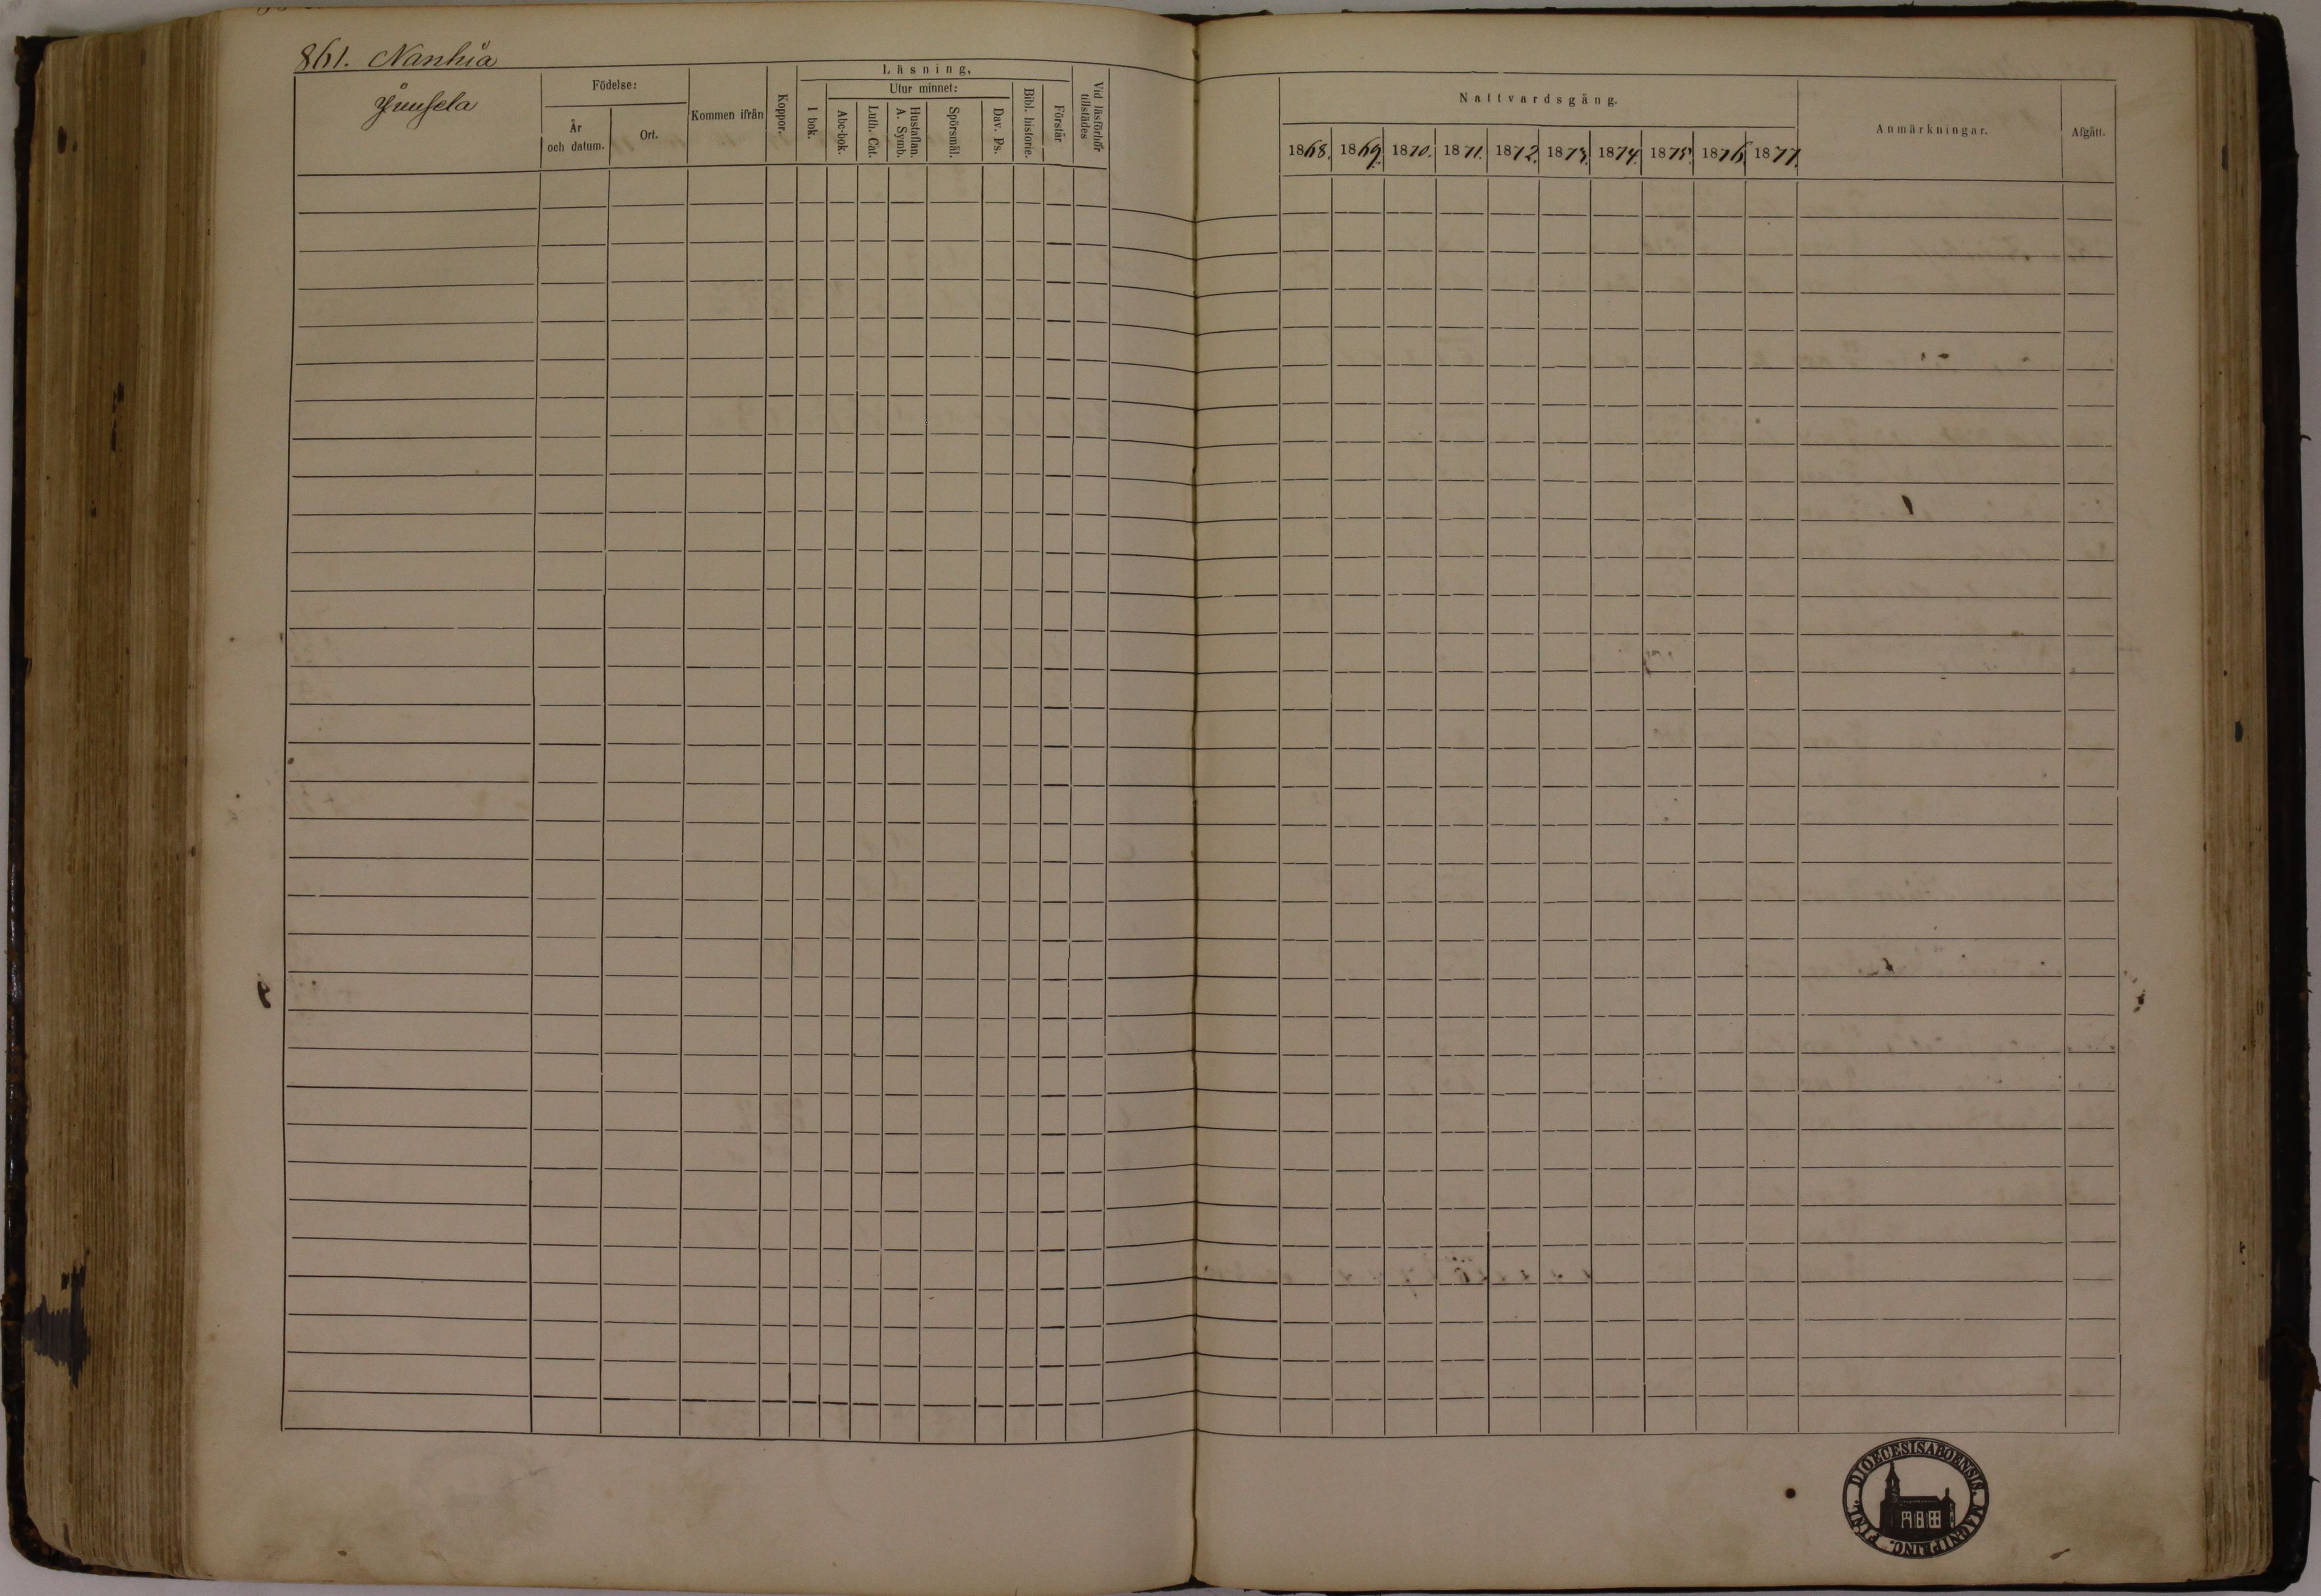 861. Nanhia
Juusela
Födelse:
År
och datum.
Ort.
Kommen ifrån
Koppor.
Läsning,
I bok.
Utur minnet:
Abc-bok.
Luth. Cat.
Hustaflan.
A. Symb.
Spörsmål.
Dav. Ps.
Bibl. historie.
Förstår
Vid läsförhör
tillstädes
Nattvardsgång.
1868. 1869. 1870. 1871. 1872. 1873. 1874. 1875. 1876. 1877.
Anmärkningar.
Afgått.
DIOECESIS ABOENSIS. MAGNI PRINC. FINL.